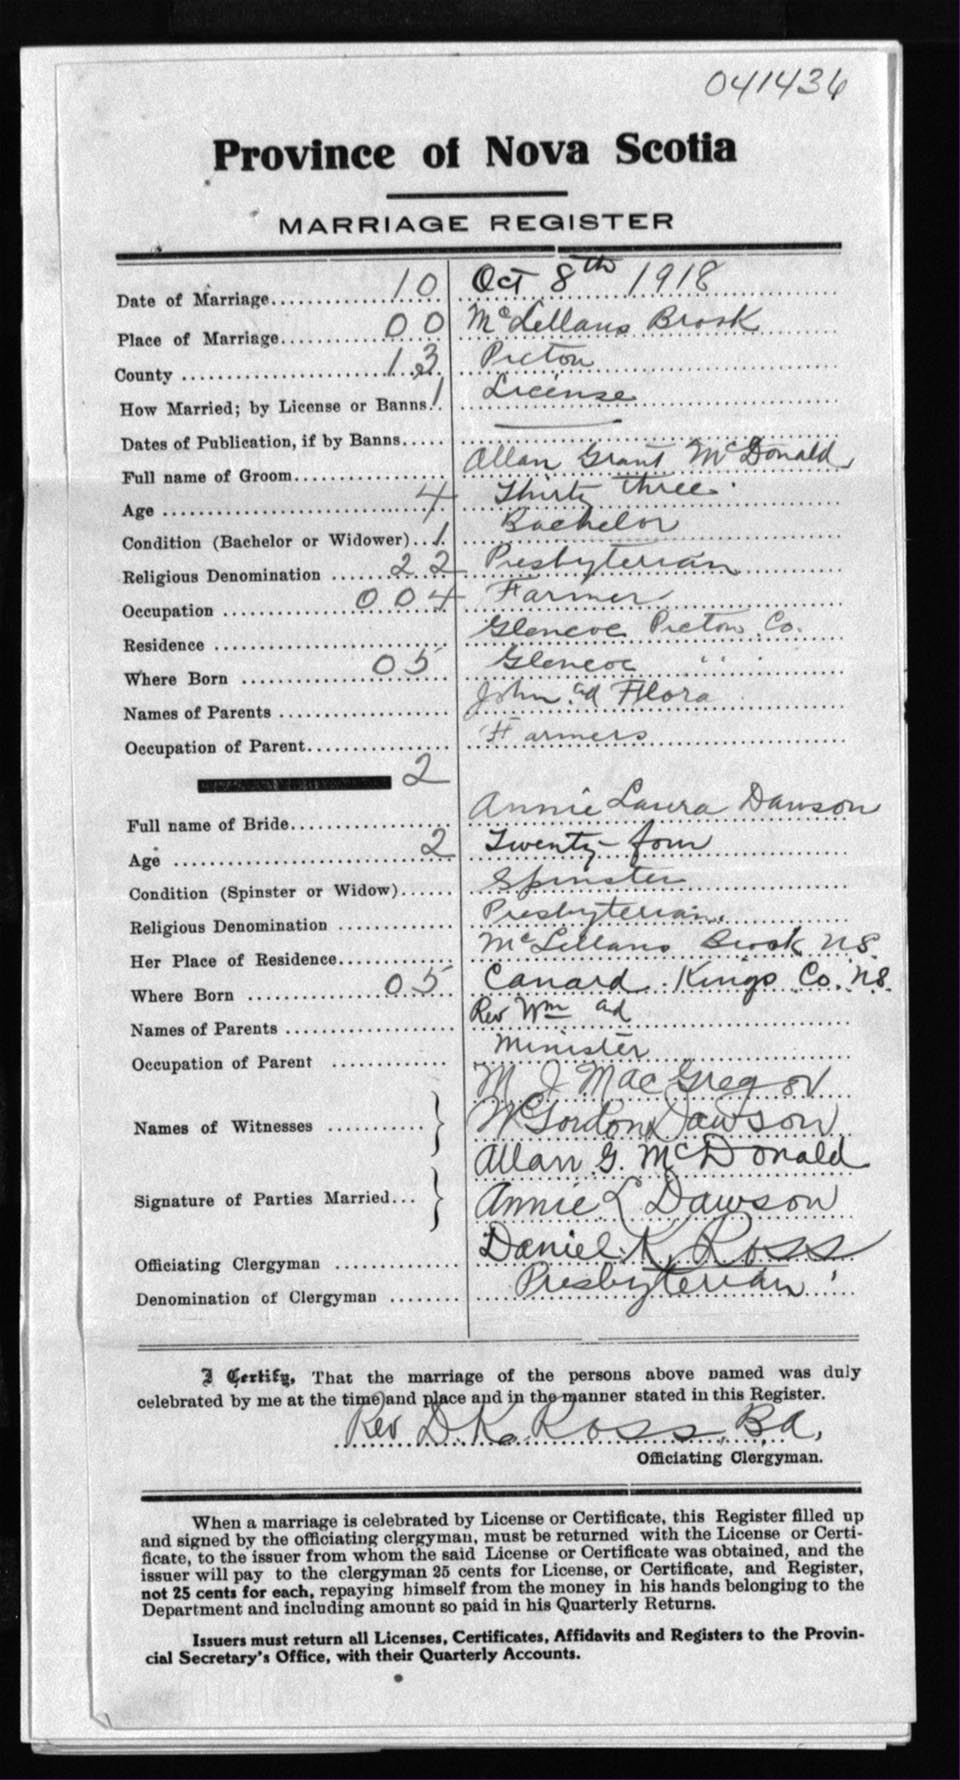 041436
Province of Nova Scotia
MARRIAGE REGISTER
Date of Marriage 10 Oct 8th 1918
Place of Marriage 00 McLellans Brook
County 13 Pictou
How Married; by License or Banns 1 License
Dates of Publication, if by Banns
Full name of Groom Allan Grant McDonald
Age 4 Thirty three
Condition (Bachelor or Widower) 1 Bachelor
Religious Denomination 22 Presbyterian
Occupation 004 Farmer
Residence Glencoe Pictou Co.
Where Born 05 Glencoe " "
Names of Parents John ad Flora
Occupation of Parent Farmers
2
Full name of Bride Annie Laura Dawson
Age 2 Twenty-four
Condition (Spinster or Widow) Spinster
Religious Denomination Presbyterian
Her Place of Residence McLellans Brook NS.
Where Born 05 Canard Kings Co. NS.
Names of Parents Rev Wm ad
Occupation of Parent Minister
M J MacGregor
Names of Witnesses W Gordon Dawson
Allan G. McDonald
Signature of Parties Married Annie L Dawson
Officiating Clergyman Daniel K. Ross
Denomination of Clergyman Presbyterian
I Certify, That the marriage of the persons above named was duly
celebrated by me at the time and place and in the manner stated in this Register.
Rev D.K. Ross, B.A.
Officiating Clergyman.
When a marriage is celebrated by License or Certificate, this Register filled up
and signed by the officiating clergyman, must be returned with the License or Certi-
ficate, to the issuer from whom the said License or Certificate was obtained, and the
issuer will pay to the clergyman 25 cents for License, or Certificate, and Register,
not 25 cents for each, repaying himself from the money in his hands belonging to the
Department and including amount so paid in his Quarterly Returns.
Issuers must return all Licenses, Certificates, Affidavits and Registers to the Provin-
cial Secretary's Office, with their Quarterly Accounts.